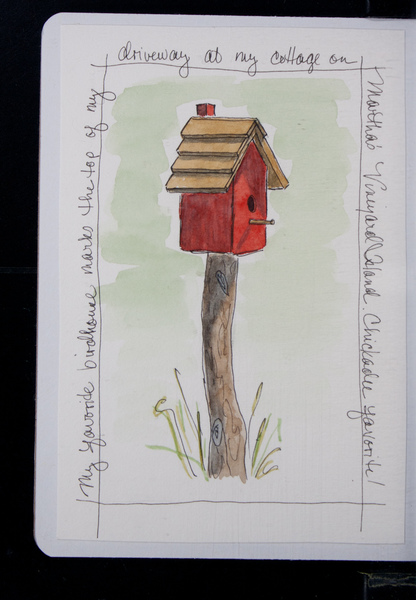 My favorite birdhouse marks the top of my
driveway at my cottage on
Martha's Vineyard Island. Chickadee favorite!